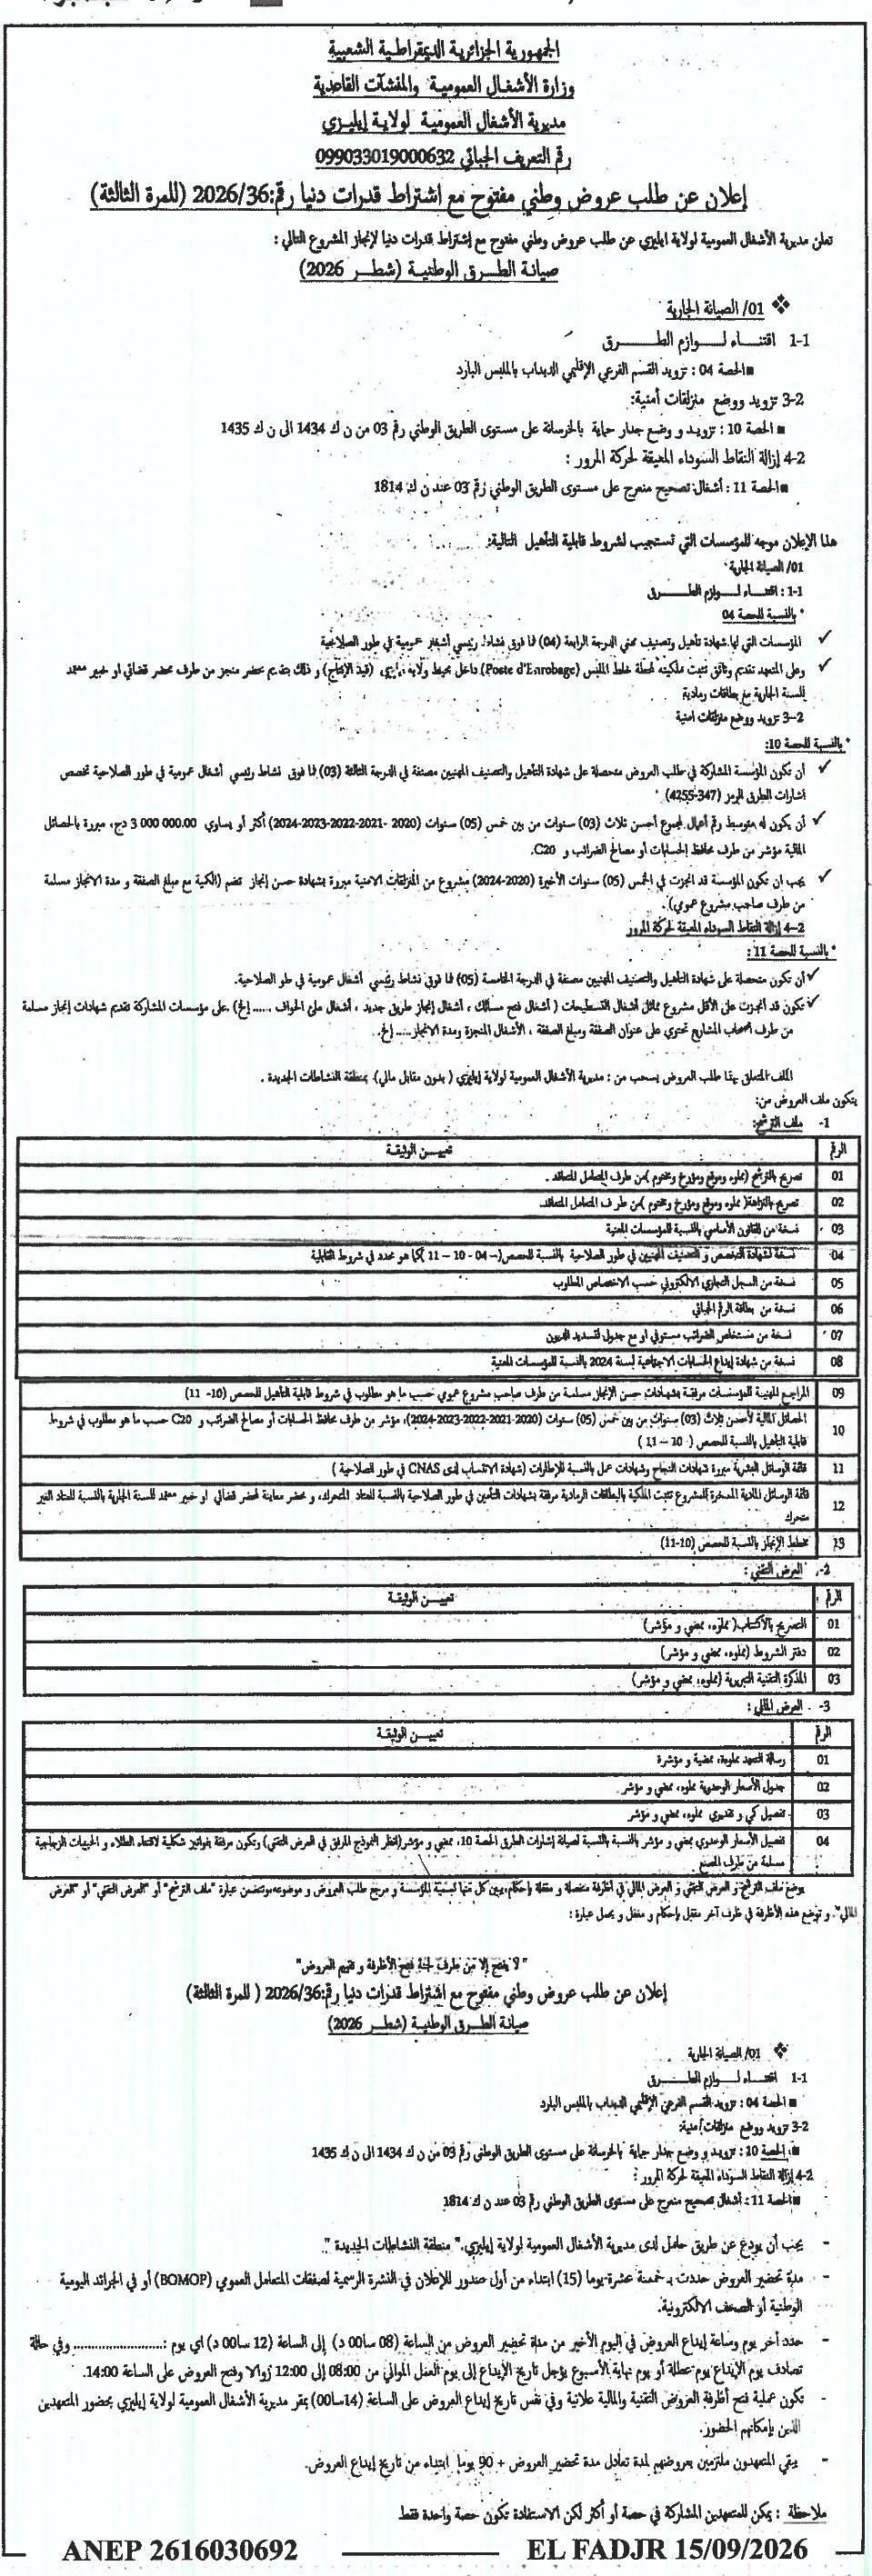 الجمهورية الجزائرية الديمقراطية الشعبية
وزارة الأشغال العمومية والمنشآت القاعدية
مديرية الأشغال العمومية لولاية إيليزي
رقم التعريف الجبائي 099033019000632
إعلان عن طلب عروض وطني مفتوح مع اشتراط قدرات دنيا رقم:2026/36 (للمرة الثالثة)
تعلن مديرية الأشغال العمومية لولاية ايليزي عن طلب عروض وطني مفتوح مع إشتراط قدرات دنيا لإنجاز المشروع التالي :
صيانة الطرق الوطنية (شطر 2026)
❖ 01/ الصيانة الجارية
1-1 اقتناء لوازم الطرق
■الحصة 04 : تزويد القسم الفرعي الإقليمي الدبداب بالملبس البارد
3-2 تزويد ووضع منزلقات أمنية:
■ الحصة 10 : تزويد و وضع جدار حماية بالخرسانة على مستوى الطريق الوطني رقم 03 من ن ك 1434 الى ن ك 1435
4-2 إزالة النقاط السوداء المعيقة لحركة المرور :
■الحصة 11 : أشغال تصحيح منعرج على مستوى الطريق الوطني رقم 03 عند ن ك 1814
هذا الإعلان موجه للمؤسسات التي تستجيب لشروط قابلية التأهيل التالية:
01/ الصيانة الجارية
1-1 : اقتناء لوازم الطرق
* بالنسبة للحصة 04
✓ المؤسسات التي لها شهادة تأهيل وتصنيف مهني الدرجة الرابعة (04) فما فوق نشاط رئيسي أشغال عمومية في طور الصلاحية
✓ وعلى المتعهد تقديم وثائق تثبت ملكيته لمحطة خلط الملبس (Poste d'Enrobage) داخل محيط ولاية إيليزي (قيد الإنتاج) و ذلك بتقديم محضر منجز من طرف محضر قضائي او خبير معتمد
للسنة الجارية مع بطاقات رمادية
3-2 تزويد ووضع منزلقات امنية
* بالنسبة للحصة 10:
✓ أن تكون المؤسسة المشاركة في طلب العروض متحصلة على شهادة التأهيل والتصنيف المهنيين مصنفة في الدرجة الثالثة (03) فما فوق نشاط رئيسي أشغال عمومية في طور الصلاحية تخصص
اشارات الطرق الرمز (347-4255)
✓ أن يكون له متوسط رقم أعمال لمجموع أحسن ثلاث (03) سنوات من بين خمس (05) سنوات (2020 -2021-2022-2023-2024) أكثر أو يساوي 3 000 000.00 دج، مبررة بالحصائل
المالية مؤشر من طرف محافظ الحسابات أو مصالح الضرائب و C20.
✓ يجب ان تكون المؤسسة قد انجزت في الخمس (05) سنوات الأخيرة (2020-2024) مشروع من المنزلقات الامنية مبررة بشهادة حسن إنجاز تضم (الكمية مع مبلغ الصفقة و مدة الانجاز مسلمة
من طرف صاحب مشروع عمومي).
4-2 إزالة النقاط السوداء المعيقة لحركة المرور
* بالنسبة للحصة 11 :
✓أن تكون متحصلة على شهادة التأهيل والتصنيف المهنيين مصنفة في الدرجة الخامسة (05) فما فوق نشاط رئيسي أشغال عمومية في طو الصلاحية.
✓تكون قد أنجزت على الأقل مشروع مماثل أشغال التسطيحات ( أشغال فتح مسالك ، أشغال إنجاز طريق جديد ، أشغال ملئ الحواف ...... إلخ) .على مؤسسات المشاركة تقديم شهادات إنجاز مسلمة
من طرف أصحاب المشاريع تحتوي على عنوان الصفقة ومبلغ الصفقة ، الأشغال المنجزة ومدة الانجاز..... إلخ.
الملف المتعلق بهذا طلب العروض يسحب من : مديرية الأشغال العمومية لولاية إيليزي ( بدون مقابل مالي) بمنطقة النشاطات الجديدة .
يتكون ملف العروض من:
1- ملف الترشح:
الرقم تعيين الوثيقة
01 تصريح بالترشح (مملوء وموقع ومؤرخ ومختوم )من طرف المتعامل المتعاقد .
02 تصريح بالنزاهة( مملوء وموقع ومؤرخ ومختوم )من طرف المتعامل المتعاقد.
03 نسخة من القانون الأساسي بالنسبة للمؤسسات المعنية
04 نسخة لشهادة التخصص و التصنيف المهنيين في طور الصلاحية بالنسبة للحصص(– 04 - 10 – 11 )كما هو محدد في شروط القابلية
05 نسخة من السجل التجاري الالكتروني حسب الاختصاص المطلوب
06 نسخة من بطاقة الرقم الجبائي
07 نسخة من مستخلص الضرائب مستوفي او مع جدول لتسديد الديون
08 نسخة من شهادة إيداع الحسابات الاجتماعية لسنة 2024 بالنسبة للمؤسسات المعنية
09 المراجع المهنية للمؤسسات مرفقة بشهادات حسن الإنجاز مسلمة من طرف صاحب مشروع عمومي حسب ما هو مطلوب في شروط قابلية التأهيل للحصص (10- 11)
10 الحصائل المالية لأحسن ثلاث (03) سنوات من بين خمس (05) سنوات (2020-2021-2022-2023-2024)، مؤشر من طرف محافظ الحسابات أو مصالح الضرائب و C20 حسب ما هو مطلوب في شروط
قابلية التأهيل بالنسبة للحصص ( 10 – 11 )
11 قائمة الوسائل البشرية مبررة شهادات النجاح وشهادات عمل بالنسبة للإطارات (شهادة الانتساب لدى CNAS في طور الصلاحية )
12 قائمة الوسائل المادية المسخرة للمشروع تثبت الملكية بالبطاقات الرمادية مرفقة بشهادات التأمين في طور الصلاحية بالنسبة للعتاد المتحرك، و محضر معاينة لمحضر قضائي او خبير معتمد للسنة الجارية بالنسبة للعتاد الغير
متحرك
13 مخطط الإنجاز بالنسبة للحصص (10-11)
2- العرض التقني :
الرقم تعيين الوثيقة
01 التصريح بالاكتتاب( مملوء، ممضي و مؤشر)
02 دفتر الشروط (مملوء، ممضي و مؤشر)
03 المذكرة التقنية التبريرية (مملوء، ممضي و مؤشر)
3- العرض المالي :
الرقم تعيين الوثيقة
01 رسالة التعهد مملوءة، ممضية و مؤشرة
02 جدول الأسعار الوحدوية مملوء، ممضي و مؤشر
03 تفصيل كمي و تقديري مملوء، ممضي و مؤشر
04 تفصيل الأسعار الوحدوي ممضي و مؤشر بالنسبة بالنسبة لصيانة إشارات الطرق الحصة 10، ممضي و مؤشر(انظر النموذج المرفق في العرض التقني) وتكون مرفقة بفواتير شكلية لاقتناء الطلاء و الحبيبات الزجاجية
مسلمة من طرف المصنع
يوضع ملف الترشح و العرض التقني و العرض المالي في أظرفة منفصلة و مقفلة بإحكام،يبين كل منها تسمية المؤسسة و مرجع طلب العروض و موضوعه،وتتضمن عبارة "ملف الترشح" أو "العرض التقني" أو "العرض
المالي". و توضع هذه الأظرفة في ظرف آخر مقفل بإحكام و مغفل و يحمل عبارة :
" لا يفتح إلا من طرف لجنة فتح الأظرفة و تقييم العروض"
إعلان عن طلب عروض وطني مفتوح مع اشتراط قدرات دنيا رقم:2026/36 ( للمرة الثالثة)
صيانة الطرق الوطنية (شطر 2026)
❖ 01/ الصيانة الجارية
1-1 اقتناء لوازم الطرق
■ الحصة 04 : تزويد القسم الفرعي الإقليمي الدبداب بالملبس البارد
3-2 تزويد ووضع منزلقات أمنية:
■ الحصة 10 : تزويد و وضع جدار حماية بالخرسانة على مستوى الطريق الوطني رقم 03 من ن ك 1434 الى ن ك 1435
4-2 إزالة النقاط السوداء المعيقة لحركة المرور :
■الحصة 11 : أشغال تصحيح منعرج على مستوى الطريق الوطني رقم 03 عند ن ك 1814
- يجب أن يودع عن طريق حامل لدى مديرية الأشغال العمومية لولاية إيليزي." منطقة النشاطات الجديدة ".
- مدة تحضير العروض حددت بـ خمسة عشرة يوما (15) ابتداء من أول صدور للإعلان في النشرة الرسمية لصفقات المتعامل العمومي (BOMOP) أو في الجرائد اليومية
الوطنية أو الصحف الالكترونية.
- حدد أخر يوم وساعة إيداع العروض في اليوم الأخير من مدة تحضير العروض من الساعة (08 سا00 د) إلى الساعة (12 سا00 د) اي يوم :....................... وفي حالة
تصادف يوم الإيداع يوم عطلة أو يوم نهاية الأسبوع يؤجل تاريخ الإيداع إلى يوم العمل الموالي من 08:00 إلى 12:00 زوالا وفتح العروض على الساعة 14:00.
- تكون عملية فتح أظرفة العروض التقنية والمالية علانية وفي نفس تاريخ إيداع العروض على الساعة (14سا00) بمقر مديرية الأشغال العمومية لولاية إيليزي بحضور المتعهدين
الذين بإمكانهم الحضور.
- يبقي المتعهدون ملتزمين بعروضهم لمدة تعادل مدة تحضير العروض + 90 يوما ابتداء من تاريخ إيداع العروض.
ملاحظة : يمكن للمتعهدين المشاركة في حصة أو أكثر لكن الاستفادة تكون حصة واحدة فقط
ANEP 2616030692 EL FADJR 15/09/2026